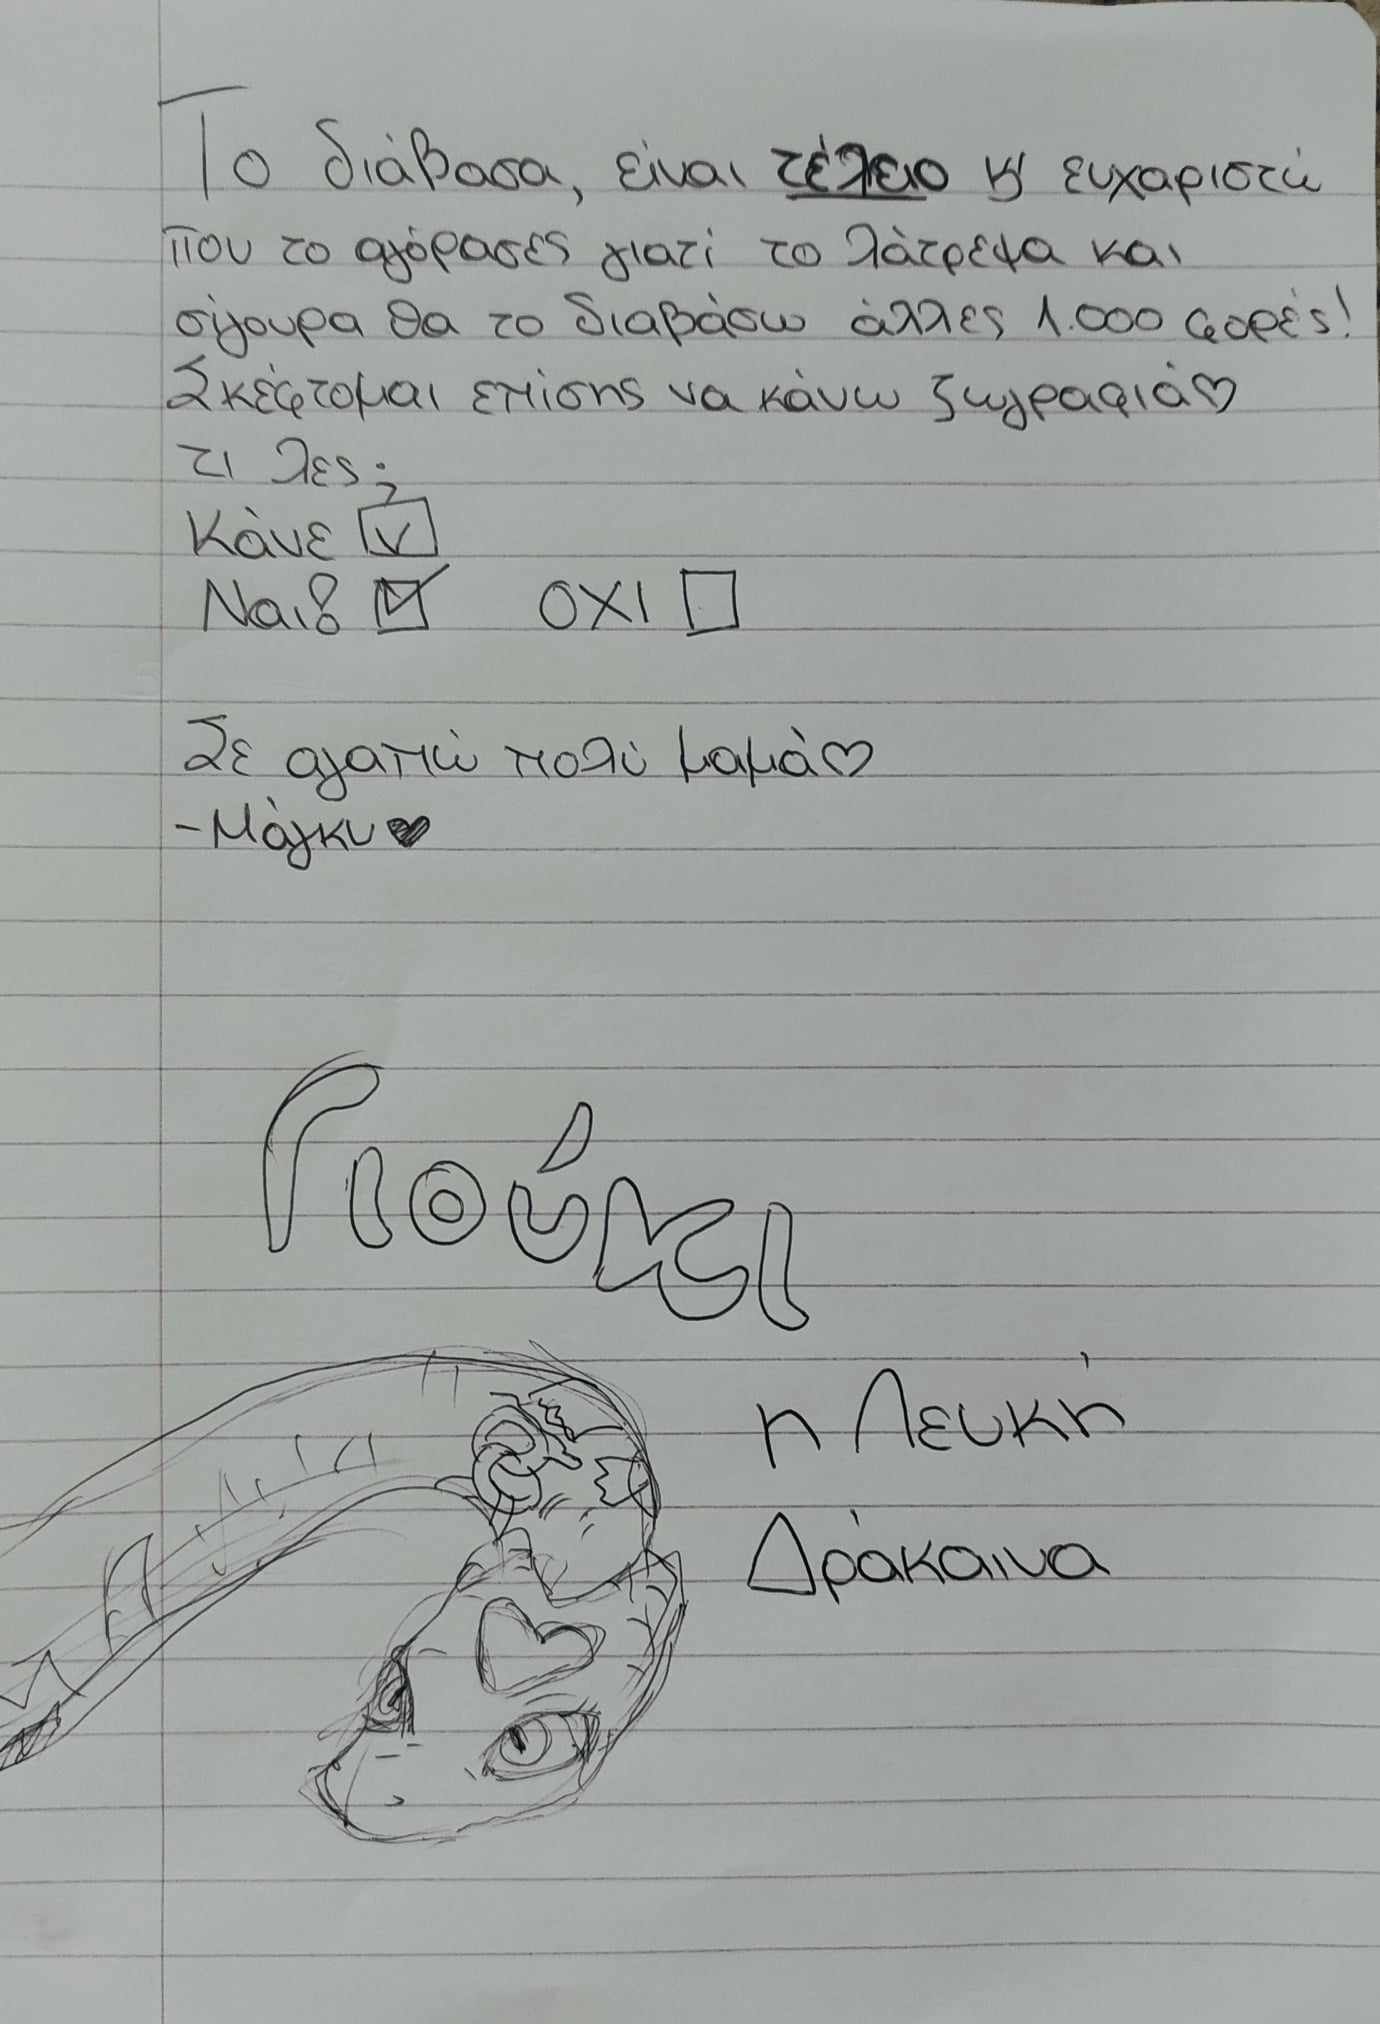 Το διάβασα, είναι τέλειο κ' ευχαριστώ
που το αγόρασες γιατί το λάτρεψα και
σίγουρα θα το διαβάσω άλλες 1.000 φορές!
Σκέφτομαι επίσης να κάνω ζωγραφιά♡
τι λες;
Κάνε ☑
Ναι! ☑ ΟΧΙ ☐
Σε αγαπώ πολύ μαμά♡
-Μάγκυ♥
Γιούκι
η Λευκή
Δράκαινα